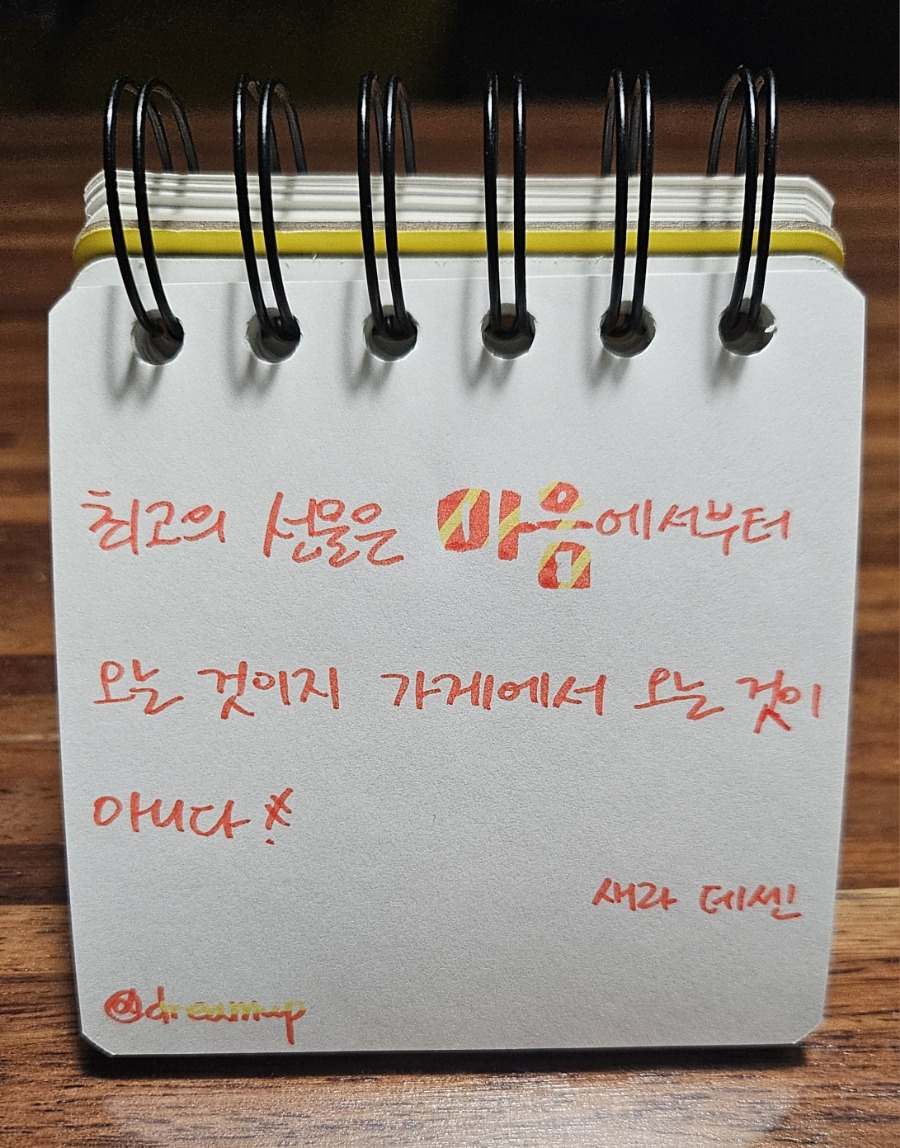 최고의 선물은 마음에서부터
오는 것이지 가게에서 오는 것이
아니다※
새라 데센
@dreamup